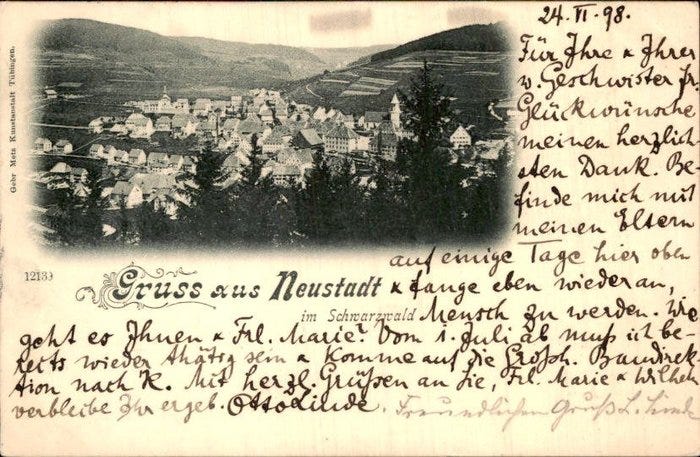 24. VI. 98.
Für Ihre & Ihrer
w. Geschwister frdl.
Glückwünsche
meinen herzlich
sten Dank. Be-
finde mich mit
meinen Eltern
auf einige Tage hier oben
& fange eben wieder an,
Mensch zu werden. Wie
geht es Ihnen & Frl. Marie? Vom 1. Juli ab muß ich be-
reits wieder thätig sein & komme auf die Großh. Baudirek
tion nach K. Mit herzl. Grüßen an Sie, Frl. Marie & Wilhelm
verbleibe Ihr ergeb. Otto Linde.
Freundlichen Gruß L. Linde
Gebr Metz Kunstanstalt Tübingen.
12139
Gruss aus Neustadt
im Schwarzwald